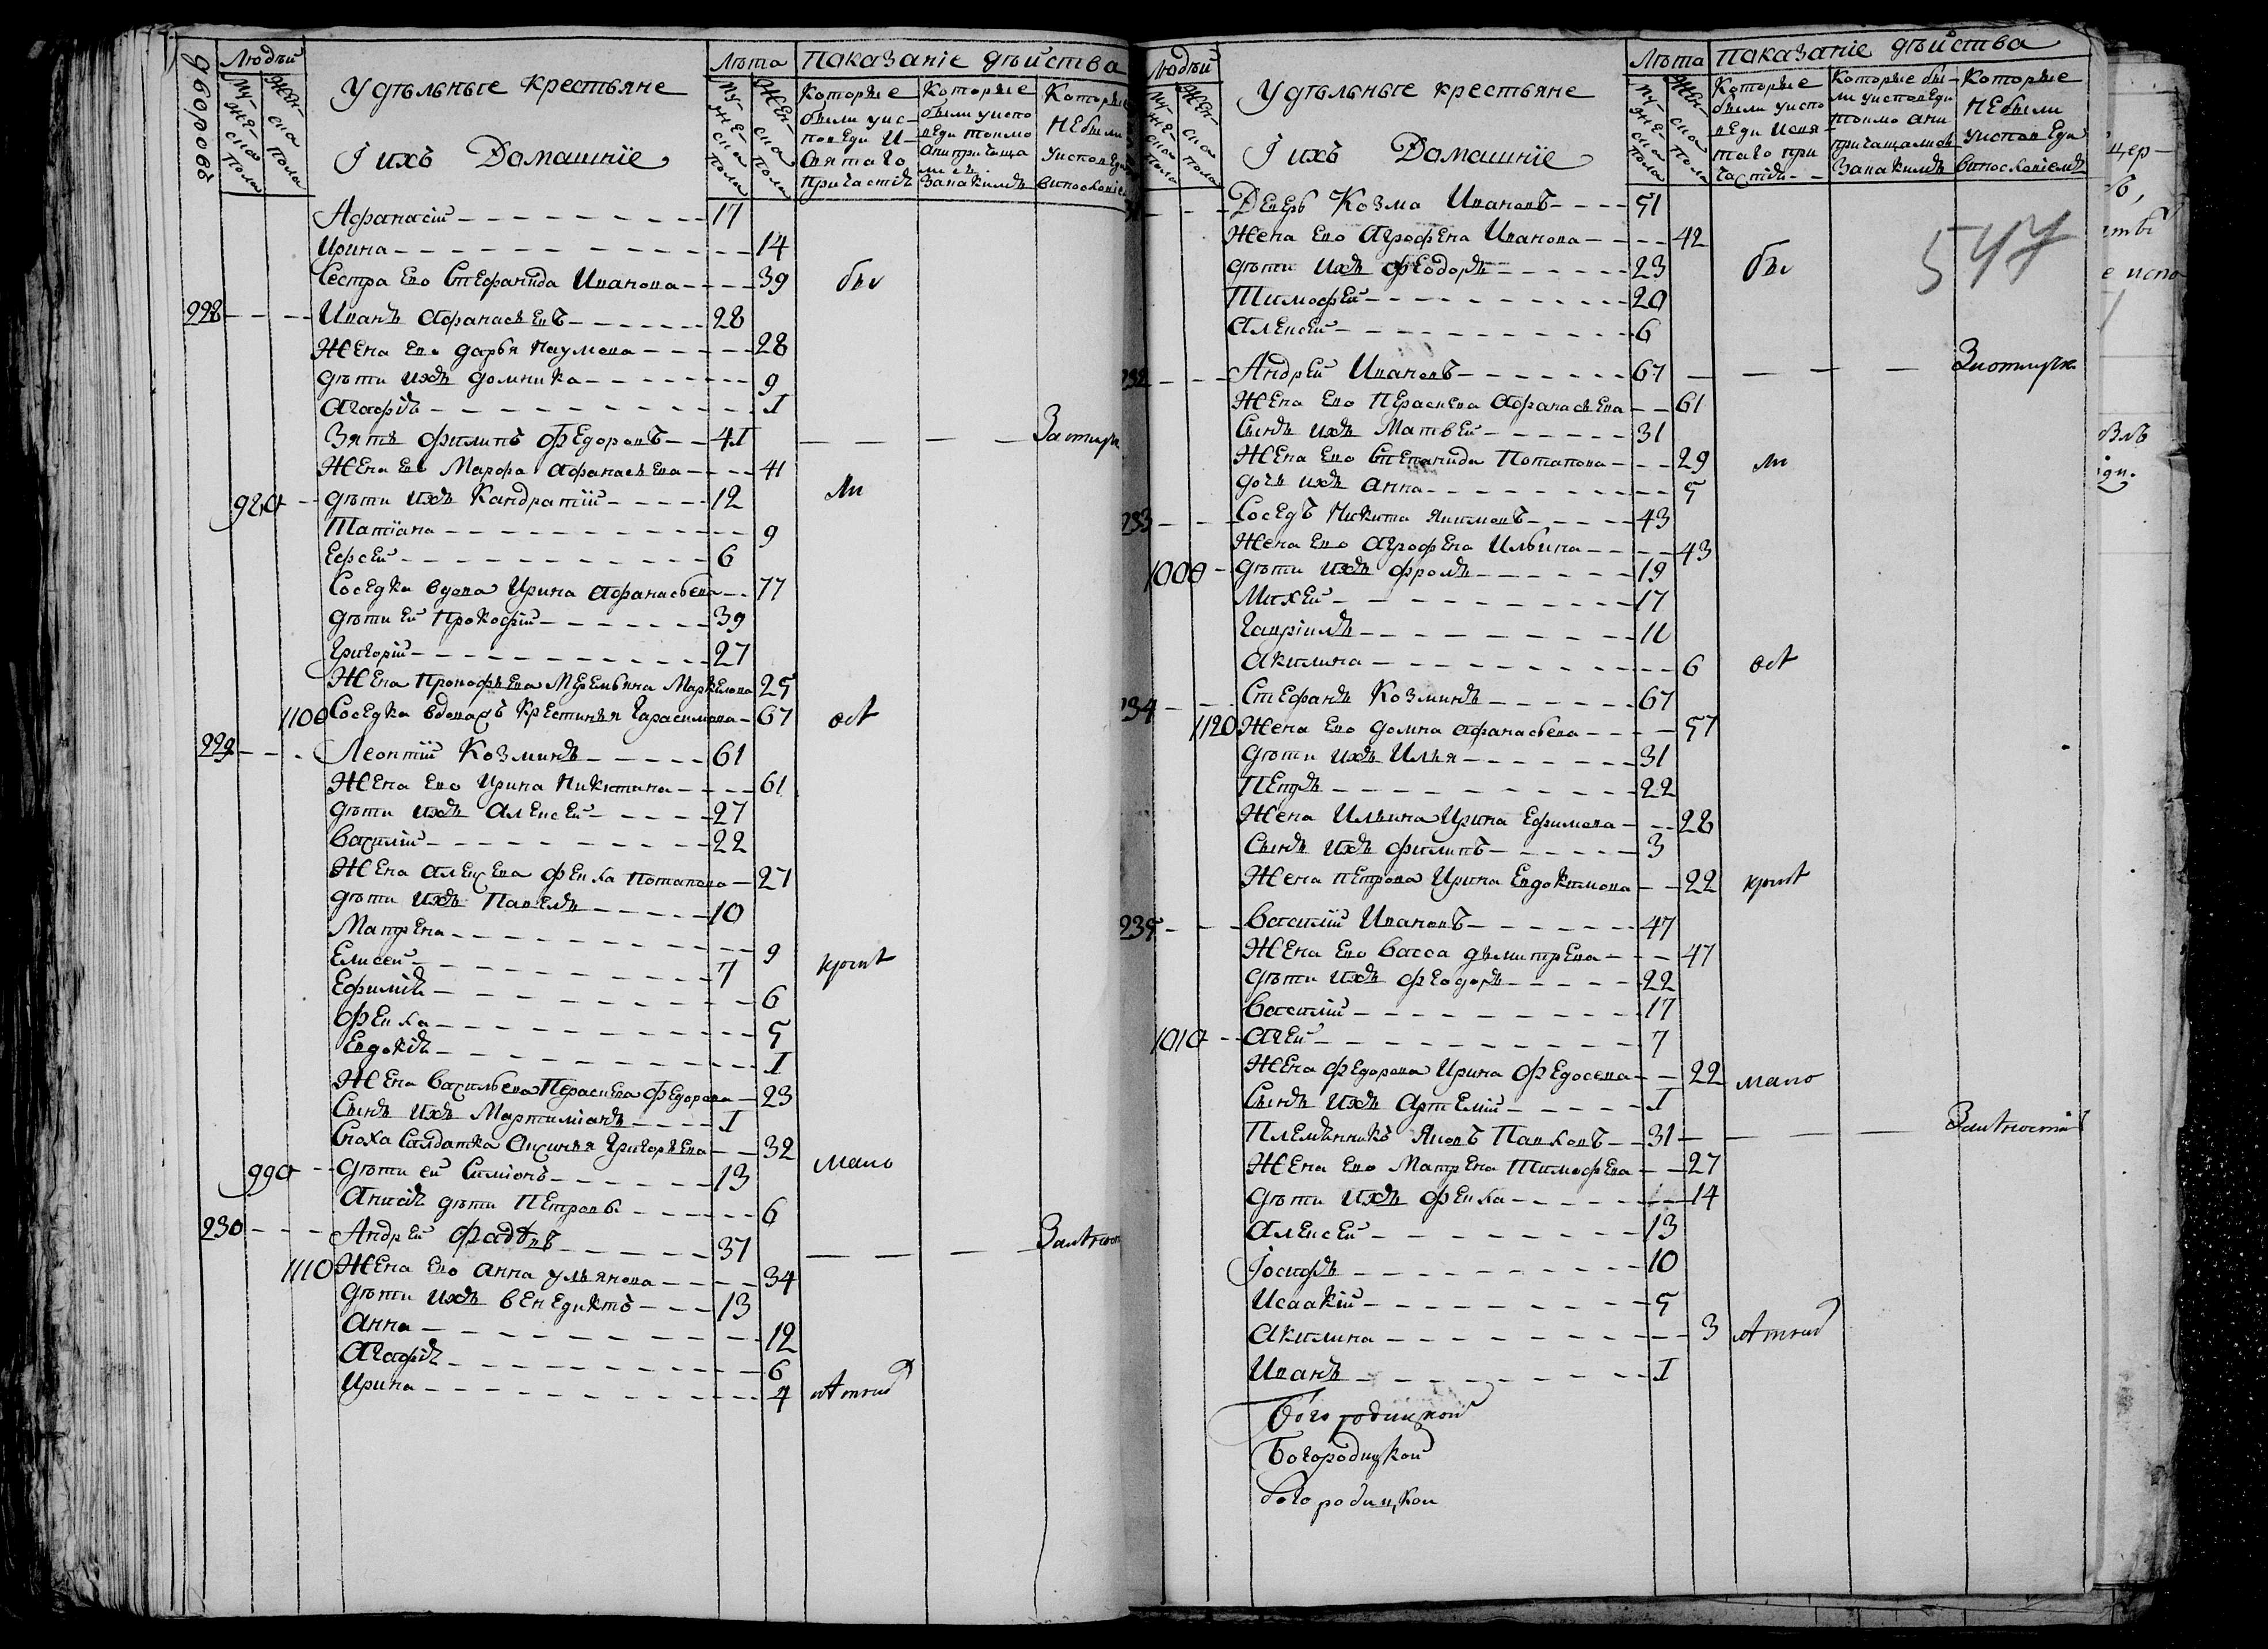 дворовъ
Людѣй
Мужеска пола
Женска пола
Удѣльные крестьяне
І ихъ Домашніе
Лѣта
Мужеска пола
Женска пола
Показаніе дѣйства
Которые были у исповеди и святаго причастія
Которые были у исповеди токмо а не причащались
Которые не были у исповеди
Афанасій 17
Ирина 14
Сестра ево Стефанида Иванова 39 бы
228 Иванъ Афанасьевъ 28
Жена ево дарья Наумова 28
дѣти ихъ домника 9
Агафія 1
Зять филипъ федоровъ 41
Жена ево Марфа Афанасьева 41
980 дѣти ихъ Кандратій 12 ли
Татіана 9
Ефсей 6
Соседка вдова Ирина Афанасьева 77
дѣти ей Прокофій 39
Григорій 27
Жена Прокофьева Маркелова 25
1100 Соседка вдова Крестинья Гарасимова 67
229 Леонтій Козминъ 61
Жена ево Ирина Никитина 61
дѣти ихъ Алексей 27
Василій 22
Жена Алексева фекла Потапова 27
дѣти ихъ Павелъ 10
Матрена 9
Елисей 7
Ефимія 6
фекла 5
Евдокія 1
Жена Васильева Пераскева федорова 23
Сынъ ихъ Мартиміанъ 1
Сноха Салдатка Аксинья Григорьева 32
990 дѣти ей Симіонъ 13 мало
Анисія дѣти Петровы 6
230 Андрей Фадѣевъ 37
1110 Жена ево Анна ульянова 34
дѣти ихъ Венедиктъ 13
Анна 12
Агафія 6
Ирина 4
Людѣй
Мужеска пола
Женска пола
Удѣльные крестьяне
І ихъ Домашніе
Лѣта
Мужеска пола
Женска пола
Показаніе дѣйства
Которые были у исповеди и святаго причастія
Которые были у исповеди токмо а не причащались
Которые не были у исповеди
Деверь Козма Ивановъ 51
Жена ево Агрофена Иванова 42
дѣти ихъ феодоръ 23 бы
547
Тимофей 20
Алексей 6
232 Андрей Ивановъ 67
Жена ево Пераскева Афанасьева 61
Сынъ ихъ Матвей 31
Жена ево Степанида Потапова 29 ли
дочь ихъ Анна 5
233 Соседъ Никита Якимовъ 43
Жена ево Агрофена Ильина 43
1000 дѣти ихъ фролъ 19
Михей 17
Гавріилъ 11
Акилина 6
234 Стефанъ Козминъ 67
1120 Жена ево домна Афанасьева 57
дѣти ихъ Илья 31
Петръ 22
Жена Ильина Ирина Ефимова 28
Сынъ ихъ филипъ 3
Жена Петрова Ирина Евдокимова 22
235 Василій Ивановъ 47
Жена ево Васса дьмитрева 47
дѣти ихъ феодоръ 22
Василій 17
1010 Агей 7
Жена федорова Ирина федосева 22 мало
Сынъ ихъ Артемій 1
Племѣнникъ Яковъ Павловъ 31
Жена ево Матрена Тимофева 27
дѣти ихъ фекла 14
Алексей 13
Іосифъ 10
Исаакій 5
Акилина 3
Иванъ 1
Богородицкой
Богородицкой
богородицкой